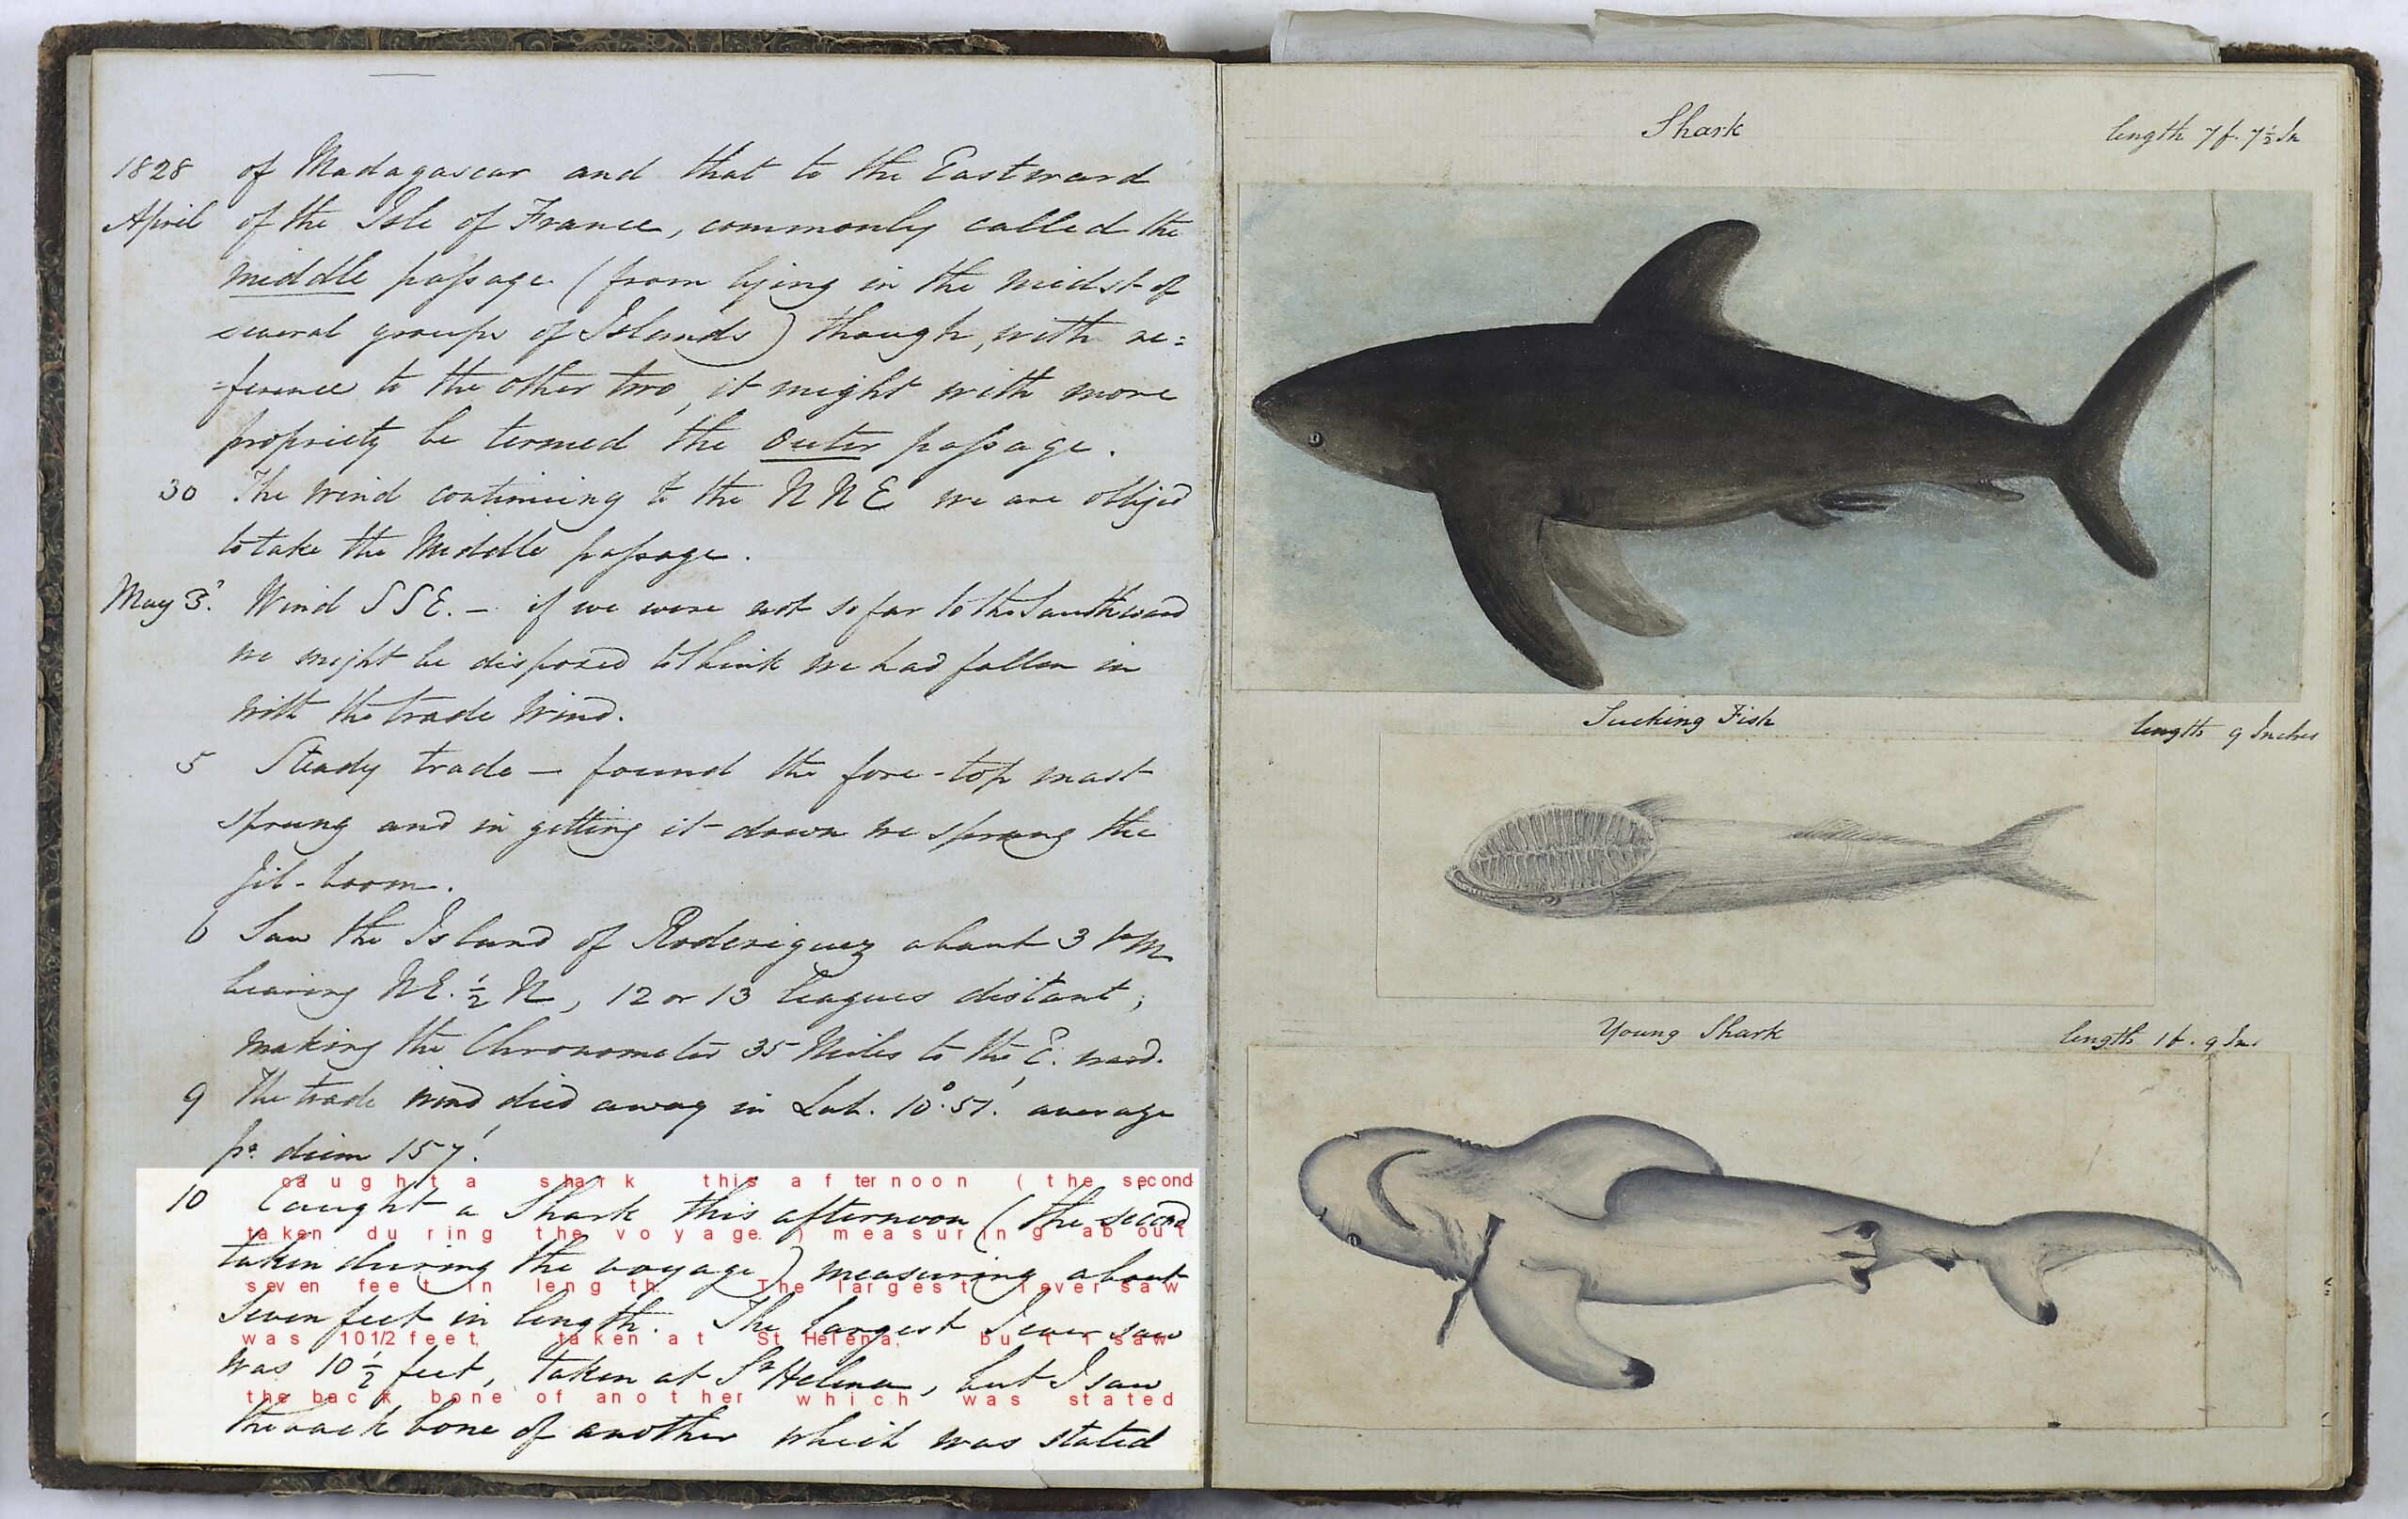 1828 of Madagascar and that to the Eastward
April of the Isle of France, commonly called the
middle passage (from lying in the midst of
several groups of Islands) though, with re=
=ference to the other two, it might with more
propriety be termed the outer passage.
30 The wind continuing to the N N E we are obliged
to take the Middle passage.
May 3. Wind S S E. — if we were not so far to the Southward
we might be disposed to think we had fallen in
with the trade Wind.
5 Steady trade — found the fore-top mast
sprung and in getting it down we sprung the
jib-boom.
6 Saw the Island of Roderiguez about 3 P M.
bearing NE. ½ N, 12 or 13 leagues distant;
making the Chronometer 35 Miles to the E. ward.
9 The trade wind died away in Lat. 10°.51.' average
pr. diem 157'.
caught a shark this afternoon ( the second
10 Caught a Shark this afternoon (the second
taken during the voyage. ) measuring about
taken during the voyage) measuring about
seven feet in length. The largest I ever saw
Seven feet in length. The largest I ever saw
was 10 1/2 feet, taken at St Helena, but I saw
was 10 ½ feet, taken at St Helena, but I saw
the back bone of another which was stated
the back bone of another which was stated
Shark length 7 f. 7 ½ In
Sucking Fish length 9 Inches
Young Shark length 1 f. 9 In.